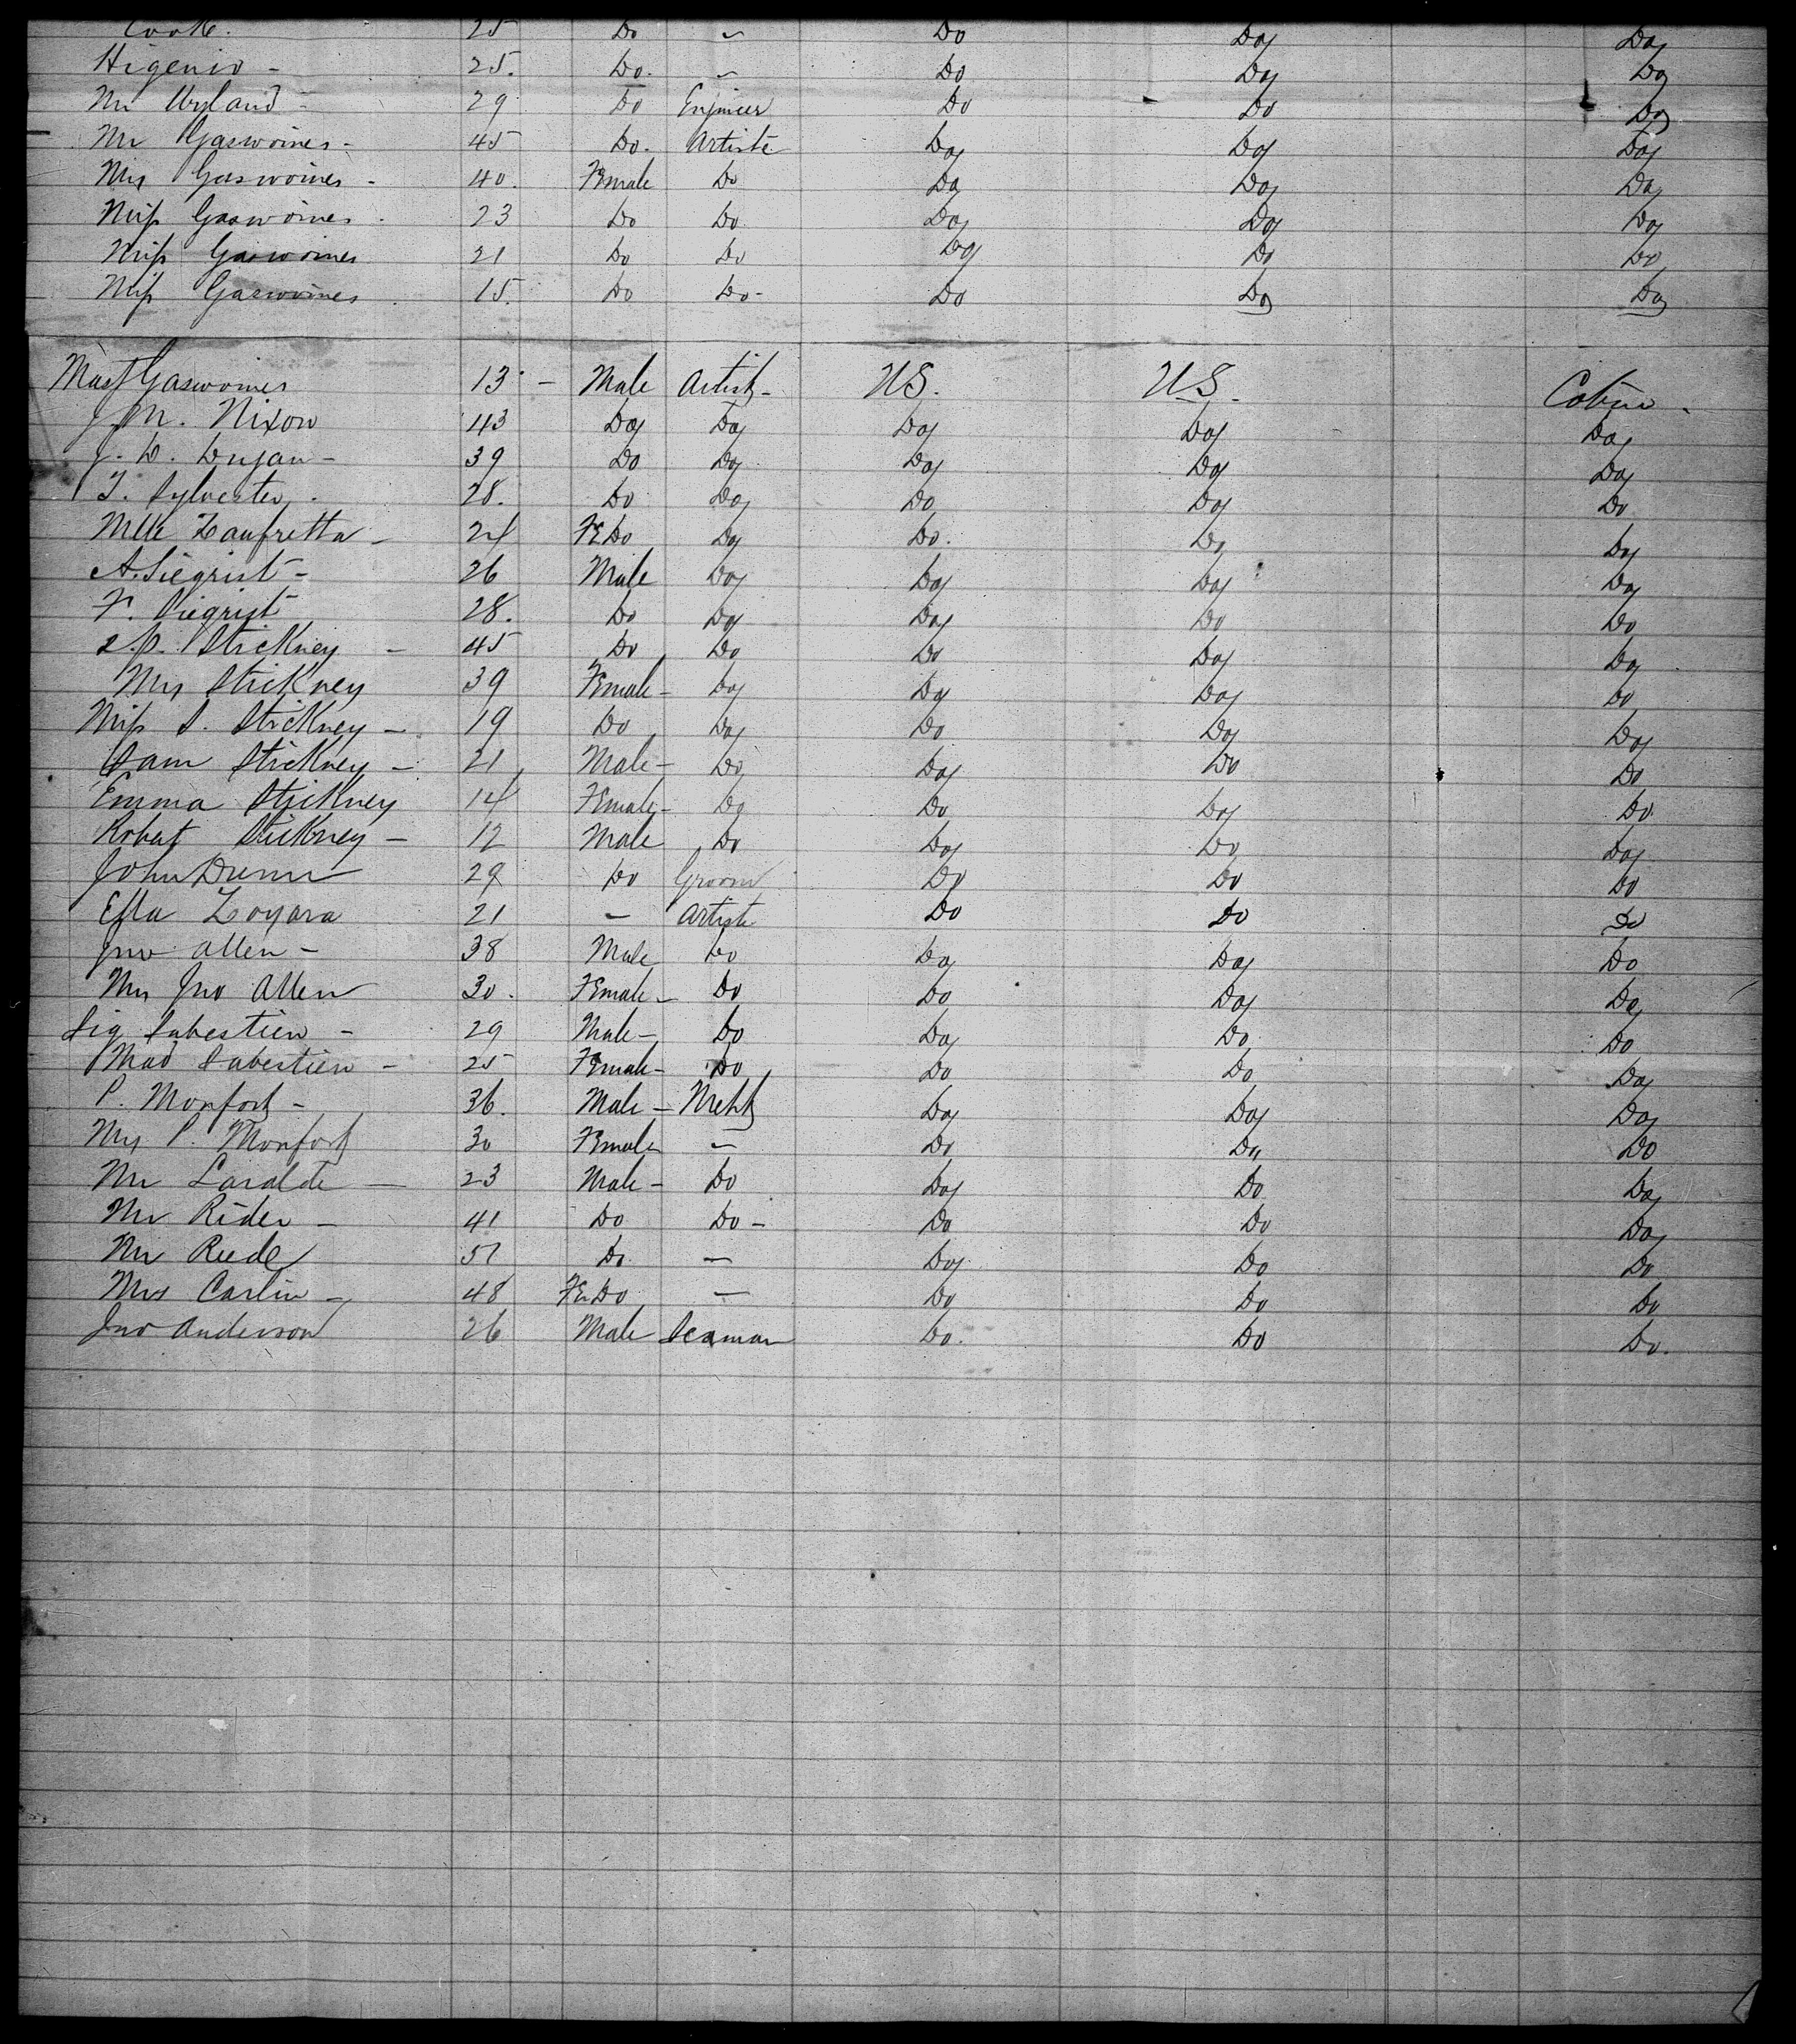 Cooke. 25 Do " Do Do Do
Higenio - 25. Do. " Do Do Do
Mr Wyland - 29 Do Engineer Do Do Do
Mr Gaswoines - 45 Do. Artiste Do Do Do
Mrs Gaswoines - 40. Female Do Do Do Do
Miss Gaswoines - 23 Do Do. Do Do Do
Miss Gaswoines 21 Do Do Do Do Do
Miss Gaswoines. 15. Do Do - Do Do Do
Mast Gaswoines 13 - Male Artist - US. US. Cabin.
J. M. Nixon 43 Do Do Do Do Do
J. D. Dugan - 39 Do Do Do Do Do
T. Sylvester. 28. Do Do Do Do Do
Mlle Zanfretta - 24 FE Do Do Do. Do Do
A. Siegrist - 26 Male Do Do Do Do
F. Siegrist 28. Do Do Do Do Do
S. P. Stickney - 45 Do Do Do Do Do
Mrs Stickney 39 Female - Do Do Do Do
Miss S. Stickney - 19 Do Do Do Do Do
Sam Stickney - 21 Male - Do Do Do Do
Emma Stickney 14 Female - Do Do Do Do
Robert Stickney - 12 Male Do Do Do Do
John Drenn 29 Do Groom Do Do Do
Ella Zoyara 21 - Artiste Do Do Do
Jno Allen - 38 Male Do Do Do Do
Mrs Jno Allen 30. Female - Do Do Do Do
Sig Sabestien - 29 Male - Do Do Do Do
Mad Sabestien - 25 Female - Do Do Do Do
P. Monfort - 36. Male - Mcht Do Do Do
Mrs P. Monfort 30 Female - Do Do Do
Mr Laralde - 23 Male - Do Do Do Do
Mr Rider - 41 Do Do - Do Do Do
Mr Reede 51 Do. - Do Do Do
Mrs Carlin - 48 FE Do - Do Do Do
Jno Anderson 26 Male Seaman Do. Do Do.